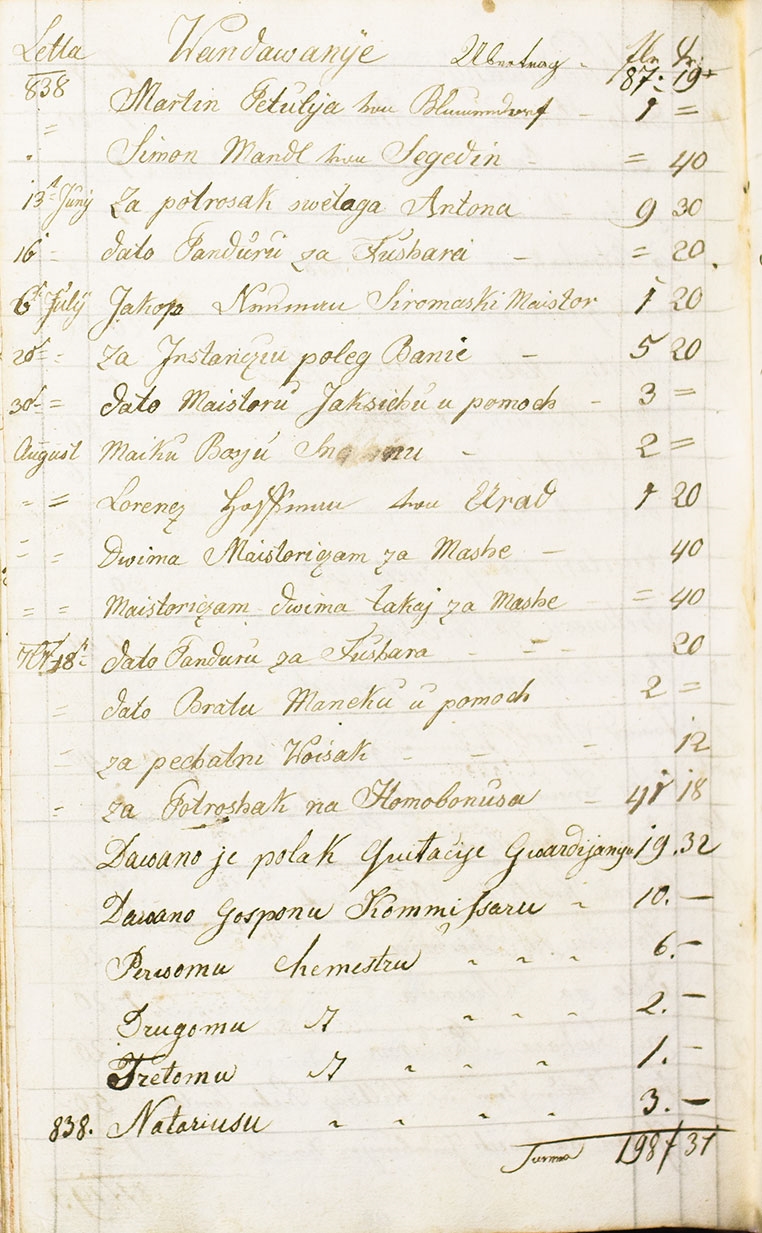 Letta Wandawanÿe Ubertrag - flr. xr.
838 87. 19
= Martin Petulija von Blumendorf - 1 =
" Simon Mandl von Segedin - = 40
13t Juny za potrosak swetaga Antona 9 30
16 - dato Panduru za Fushara - = 20
6t Julÿ Jakop Siromaski Maistor 1 20
20t - za Instancziu poleg Banie - 5 20
30t = dato Maistoru Jaksichu u pomoch - 3 =
August Maiku - 2 =
- = Lorencz Hoffman von Urad 1 20
- - Dwima Maistoriczam za Mashe - 40
= = Maistoriczam dwima takaj za Mashe = 40
7br 18t dato Panduru za Fushara - - - 20
= dato Bratu Maneku u pomoch 2 =
- za pechatni Woisak - - - 12
- za Potroshak na Homobonusa - 41 18
Dawano je polak Quitacije Gwardijanu 19. 32
Dawano Gosponu Kommissaru - 10. -
Perwomu Chemestru - - - 6. -
Drugomu - - - 2. -
Tretomu - - - 1. -
838. Notariusu - - - - 3. -
Summa 198 31